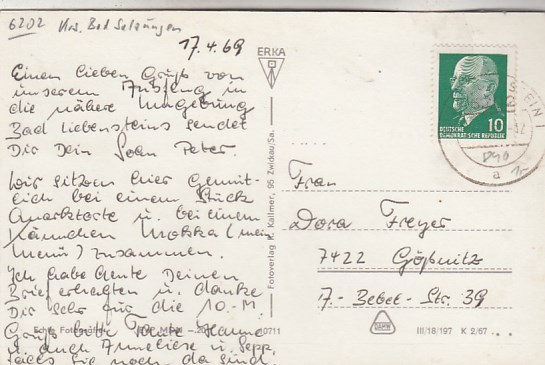 6202 Krs. Bad Salzungen
17.4.69
Einen lieben Gruß von
unserem Ausflug in
die nähere Umgebung
Bad Liebensteins sendet
Dir Dein Sohn Peter.
Wir sitzen hier gemüt-
lich bei einem Stück
Quarktorte u. bei einem
Kännchen Mokka (mein
Menü) zusammen.
Ich habe heute Deinen
Brief erhalten u. danke
Dir sehr für die 10.-M.
Grüße bitte Tante Hanne
u. auch Anneliese u. Sepp,
falls sie noch da sind.
Echte Fotografie
20711
ERKA
Fotoverlag K. Kallmer, 95 Zwickau/Sa.
10
DEUTSCHE
DEMOKRATISCHE REPUBLIK
EIN
a
Frau
Dora Freyer
7422 Gößnitz
A.-Bebel-Str. 39
III/18/197 K 2/67